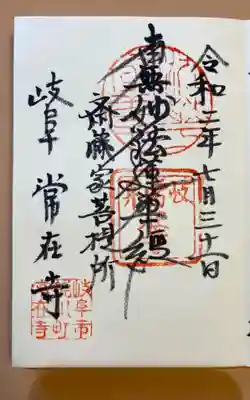 令和二年七月三十一日
南無妙法蓮華経
斎藤家菩提所
岐阜 常在寺
岐阜市
在寺